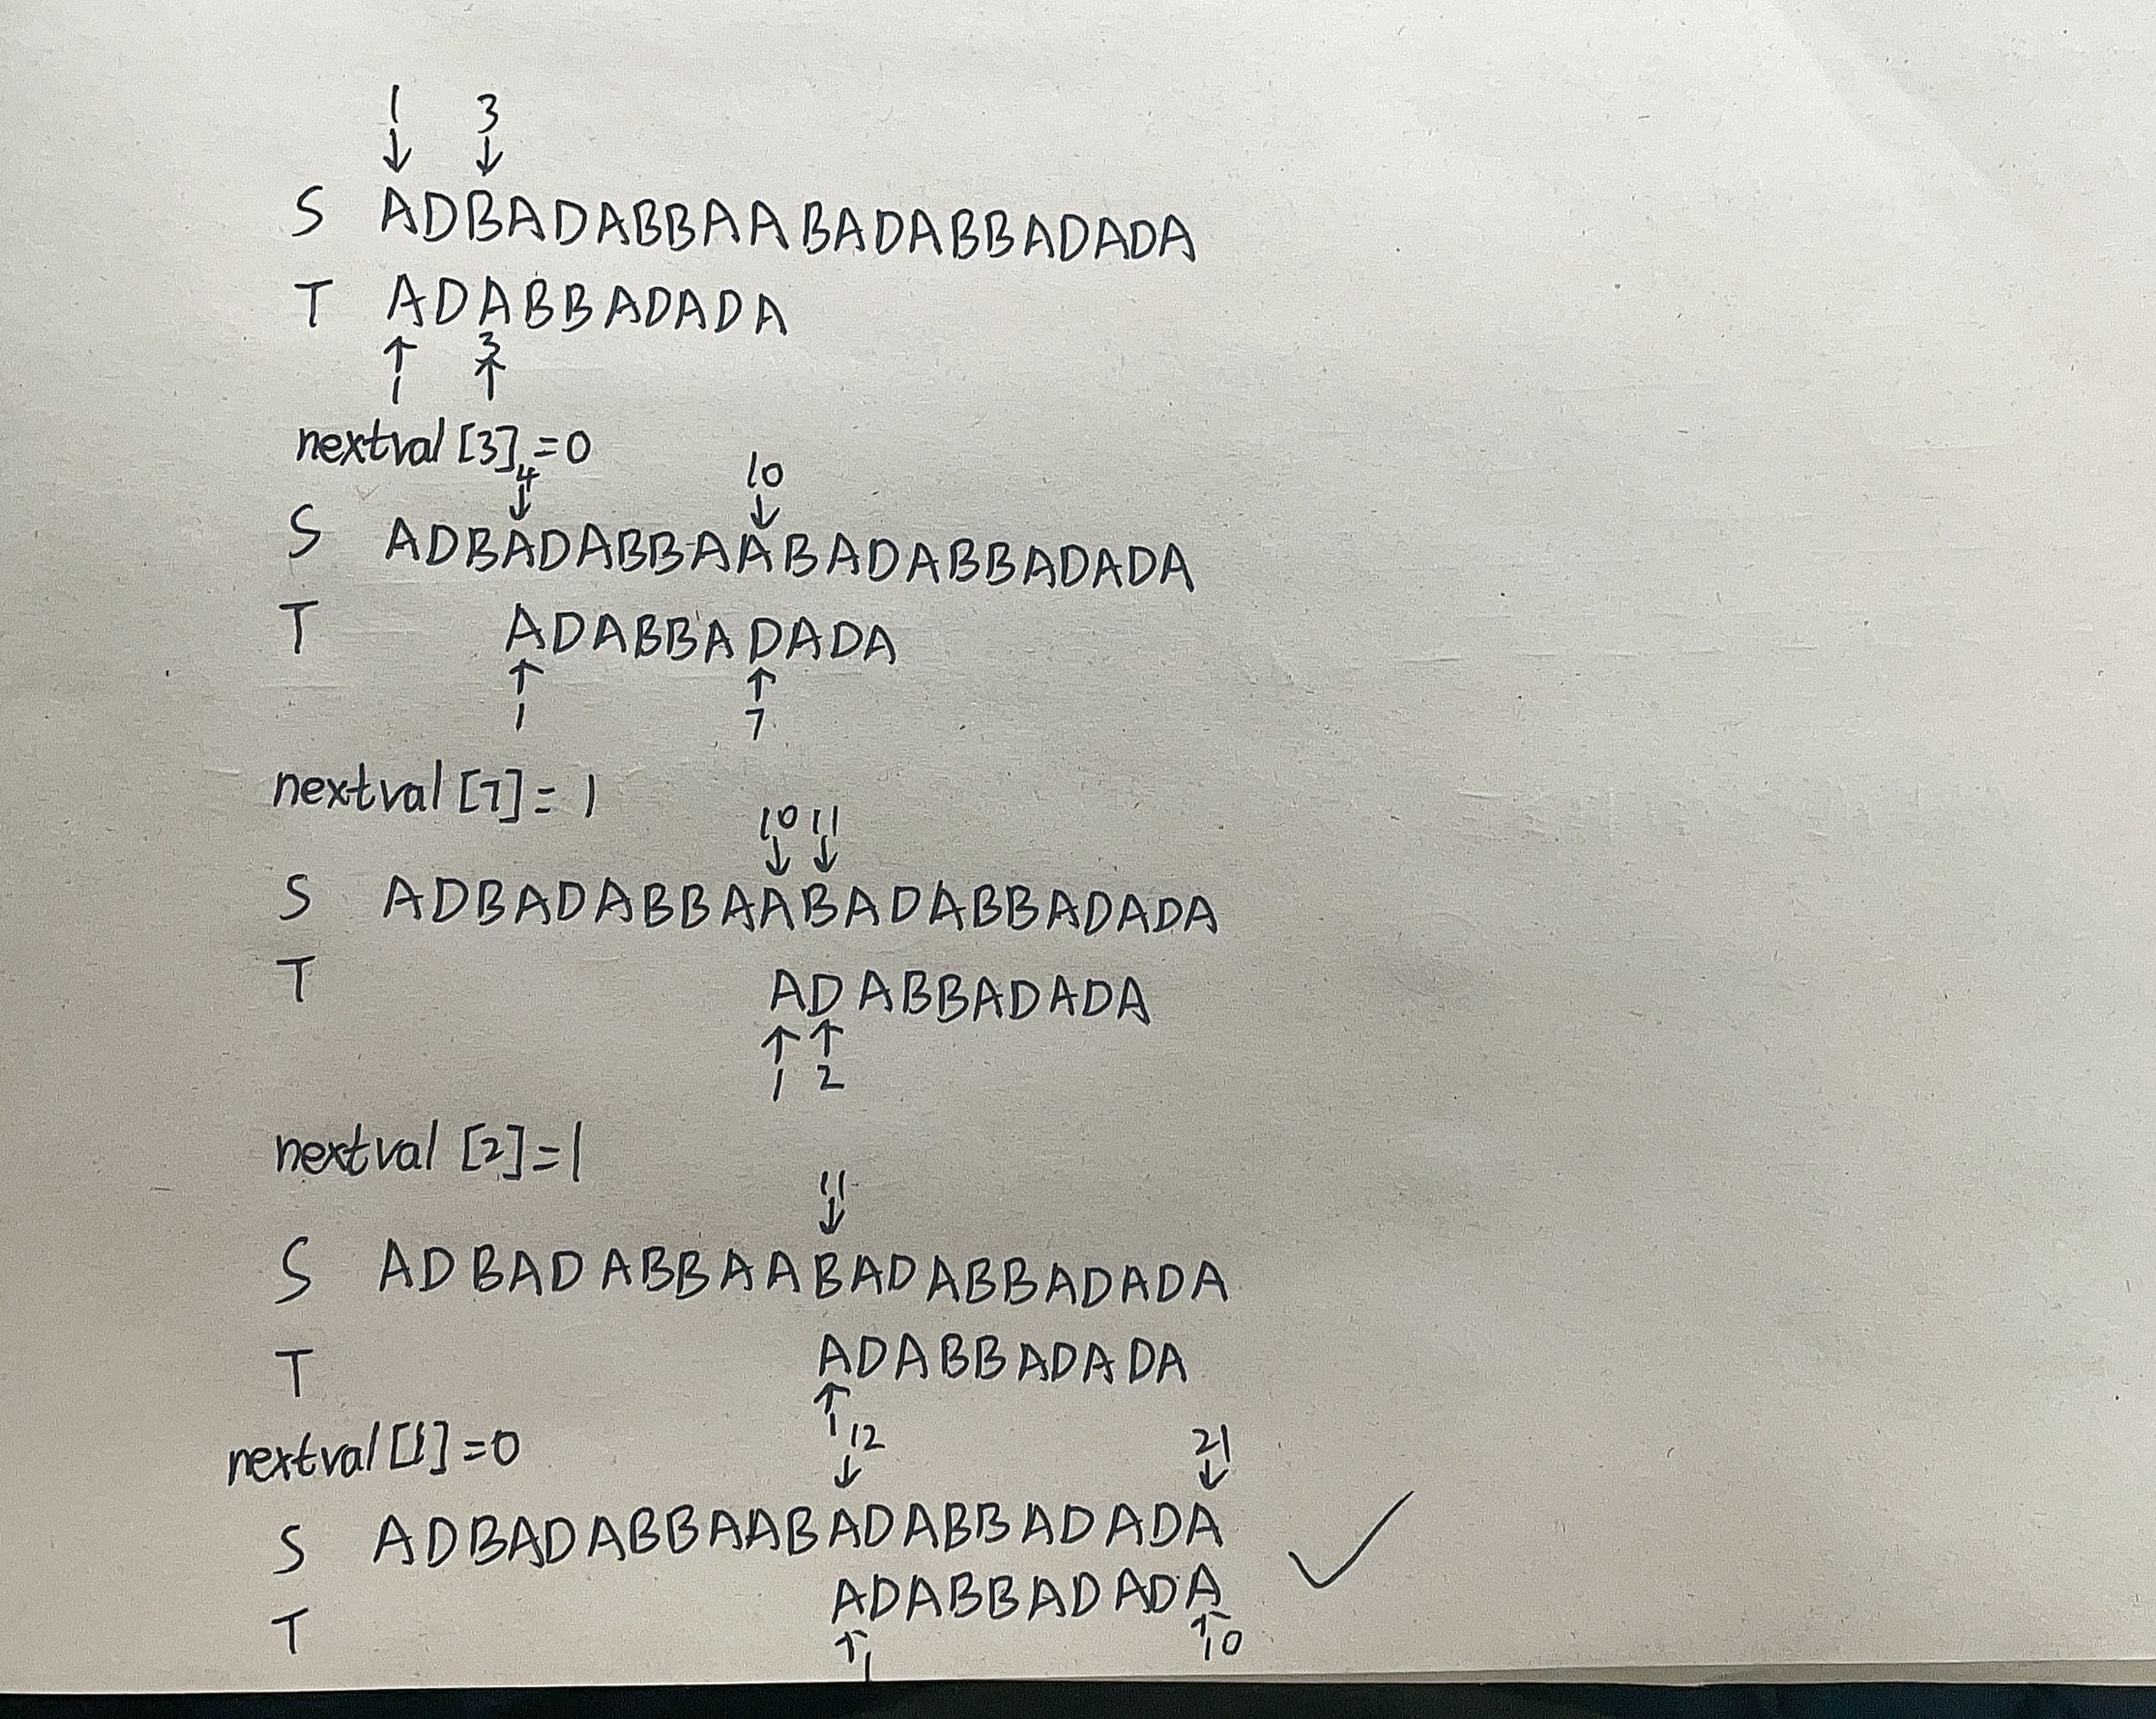 1 3
↓ ↓
S ADBADABBAABADABBADADA
T ADABBADADA
↑ 3
1 ↑
nextval [3] = 0
4 10
↓ ↓
S ADBADABBAABADABBADADA
T ADABBADADA
↑ ↑
1 7
nextval [7] = 1
10 11
↓ ↓
S ADBADABBAABADABBADADA
T ADABBADADA
↑ ↑
1 2
nextval [2] = 1
11
↓
S ADBADABBAABADABBADADA
T ADABBADADA
↑
1
nextval [1] = 0
12 21
↓ ↓
S ADBADABBAABADABBADADA ✓
T ADABBADADA
↑ ↑
1 10